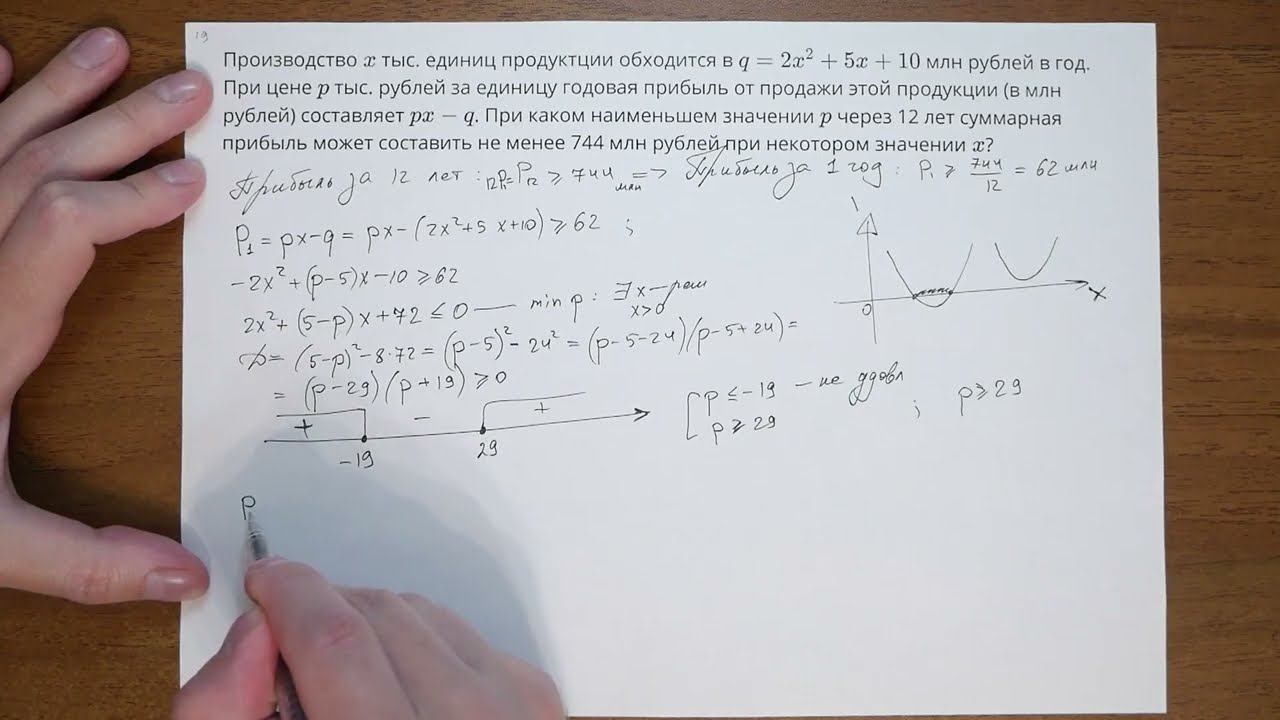 19
Производство x тыс. единиц продуктции обходится в q = 2x² + 5x + 10 млн рублей в год.
При цене p тыс. рублей за единицу годовая прибыль от продажи этой продукции (в млн
рублей) составляет px − q. При каком наименьшем значении p через 12 лет суммарная
прибыль может составить не менее 744 млн рублей при некотором значении x?
Прибыль за 12 лет : 12P₁=P₁₂ ⩾ 744 млн => Прибыль за 1 год : P₁ ⩾ 744/12 = 62 млн
P₁ = px−q = px−(2x²+5x+10) ⩾ 62 ;
−2x²+(p−5)x−10 ⩾ 62
2x²+(5−p)x+72 ⩽ 0 — min p : ∃ x−реш
x>0
D = (5−p)²−8·72 = (p−5)²−24² = (p−5−24)(p−5+24) =
= (p−29)(p+19) ⩾ 0
+ − +
−19 29
[ p ⩽ −19 — не удовл
p ⩾ 29 ; p ⩾ 29
0 x
P